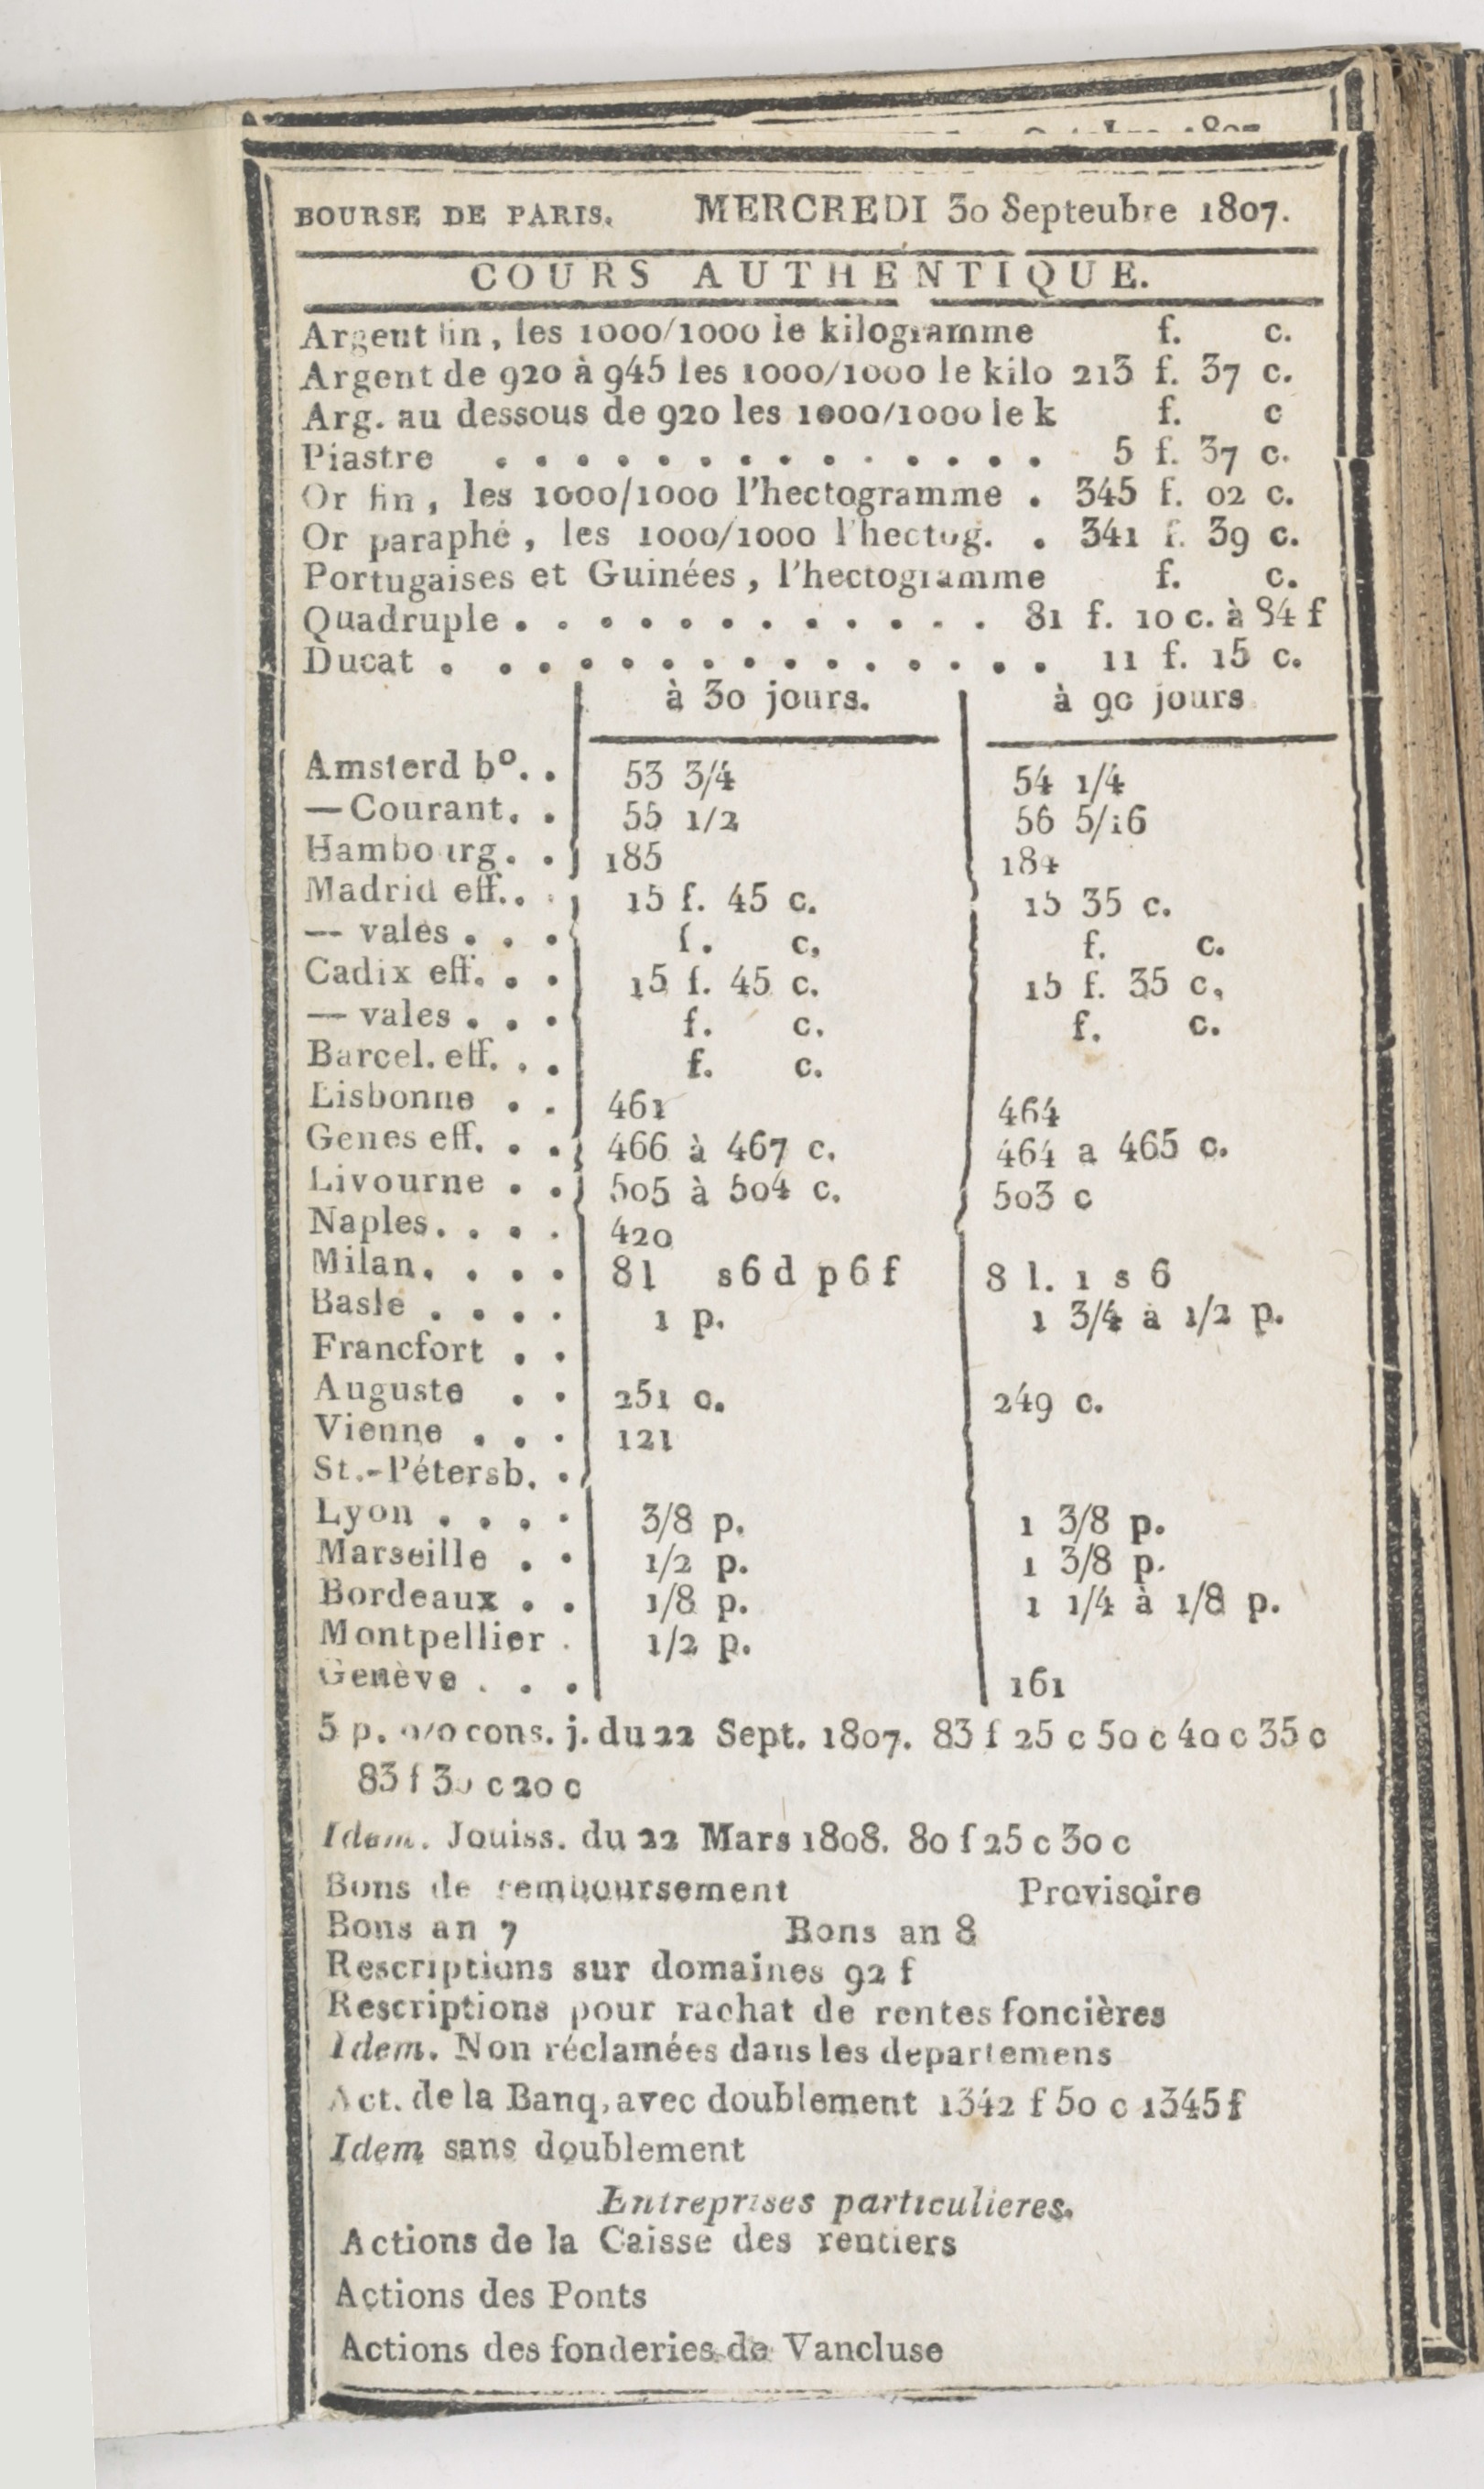 BOURSE DE PARIS. MERCREDI 30 Septeubre 1807.
COURS AUTHENTIQUE.
Argent fin, les 1000/1000 le kilogramme f. c.
Argent de 920 à 945 les 1000/1000 le kilo 213 f. 37 c.
Arg. au dessous de 920 les 1000/1000 le k f. c
Piastre . . . . . . . . . . . . . . 5 f. 37 c.
Or fin, les 1000/1000 l'hectogramme . 345 f. 02 c.
Or paraphé, les 1000/1000 l'hectog. . 341 f. 39 c.
Portugaises et Guinées, l'hectogramme f. c.
Quadruple . . . . . . . . . . . . 81 f. 10 c. à 84 f
Ducat . . . . . . . . . . . . . . . 11 f. 15 c.
à 30 jours. à 90 jours
Amsterd bº. . 53 3/4 54 1/4
—Courant. . 55 1/2 56 5/16
Hambourg. . 185 184
Madrid eff. . . 15 f. 45 c. 15 35 c.
— vales . . . f. c, f. c.
Cadix eff. . . 15 f. 45 c. 15 f. 35 c,
— vales . . . f. c. f. c.
Barcel. eff. . . f. c.
Lisbonne . . 461 464
Genes eff. . . 466 à 467 c. 464 a 465 c.
Livourne . . 505 à 504 c. 503 c
Naples. . . . 420
Milan. . . . 8 l s 6 d p 6 f 8 l. 1 s 6
Basle . . . . 1 p. 1 3/4 à 1/2 p.
Francfort . .
Auguste . . 251 c. 249 c.
Vienne . . . 121
St.-Pétersb. .
Lyon . . . . 3/8 p. 1 3/8 p.
Marseille . . 1/2 p. 1 3/8 p.
Bordeaux . . 1/8 p. 1 1/4 à 1/8 p.
Montpellier . 1/2 p.
Genève . . . 161
5 p. 0/0 cons. j. du 22 Sept. 1807. 83 f 25 c 50 c 40 c 35 c
83 f 30 c 20 c
Idem. Jouiss. du 22 Mars 1808. 80 f 25 c 30 c
Bons de remboursement Provisoire
Bons an 7 Bons an 8
Rescriptions sur domaines 92 f
Rescriptions pour rachat de rentes foncières
Idem. Non réclamées dans les departemens
Act. de la Banq, avec doublement 1342 f 50 c 1345 f
Idem sans doublement
Entreprises particulieres.
Actions de la Caisse des rentiers
Actions des Ponts
Actions des fonderies de Vancluse